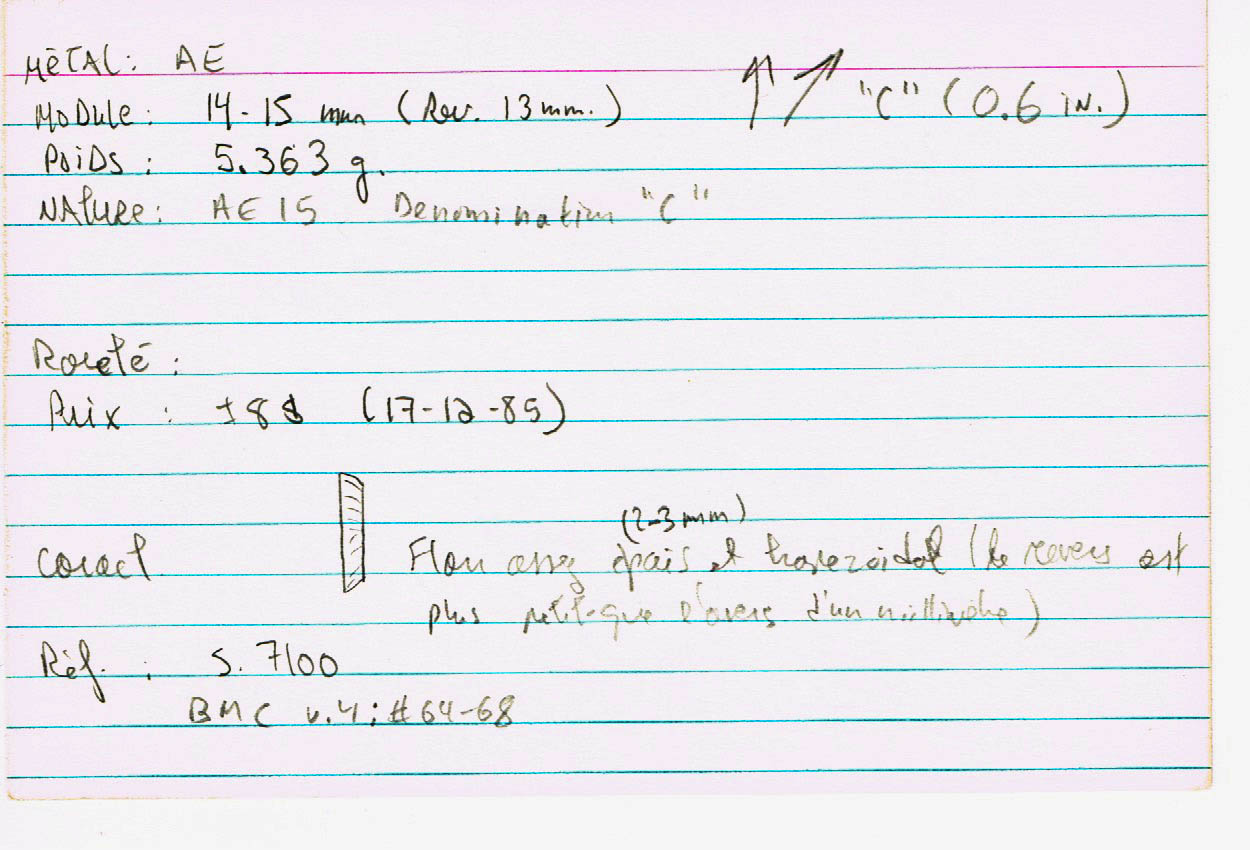 MÉTAL: AE
MODULE: 14-15 mm (Rev. 13 mm.) "C" (0.6 IN.)
POIDS: 5.363 g.
NATURE: AE 15 Denomination "C"
Rareté:
Prix: ±8$ (17-12-85)
(2-3 mm)
Caract Flan assez épais et trapezoidal (le revers est
plus petit que l'avers d'un millimètre)
Réf.: S. 7100
BMC v.4: #64-68